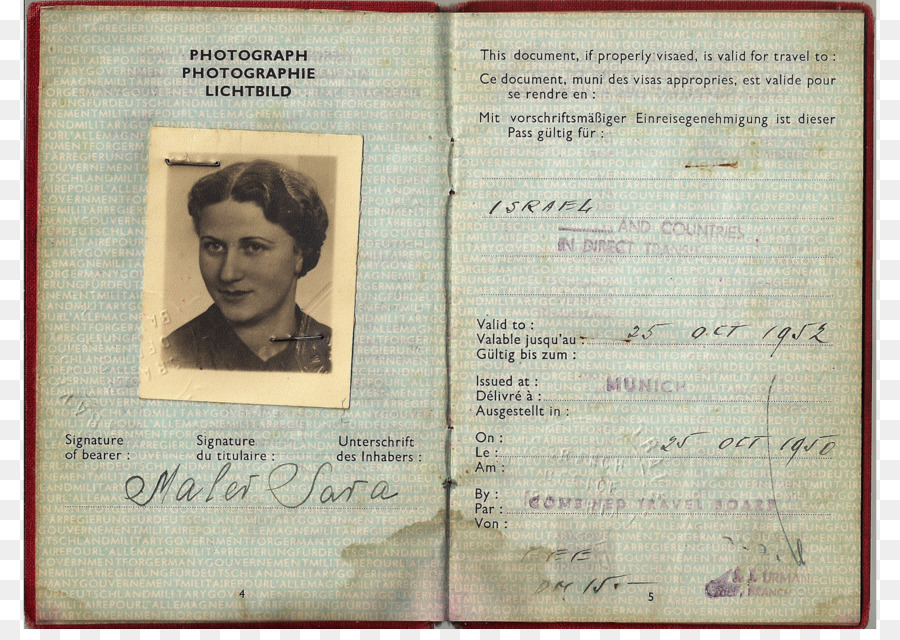 PHOTOGRAPH
PHOTOGRAPHIE
LICHTBILD
Signature
of bearer :
Signature
du titulaire :
Unterschrift
des Inhabers :
Maler Sara
4
This document, if properly visaed, is valid for travel to :
Ce document, muni des visas appropries, est valide pour
se rendre en :
Mit vorschriftsmäßiger Einreisegenehmigung ist dieser
Pass gültig für :
ISRAEL
AND COUNTRIES
IN DIRECT TRANSIT
Valid to :
Valable jusqu'au : 25 OCT 1952
Gültig bis zum :
Issued at :
Délivré à : MUNICH
Ausgestellt in :
On :
Le : 25 OCT 1950
Am :
By :
Par : COMBINED TRAVEL BOARD
Von :
FEE
DM 15.-
BRANCH
5